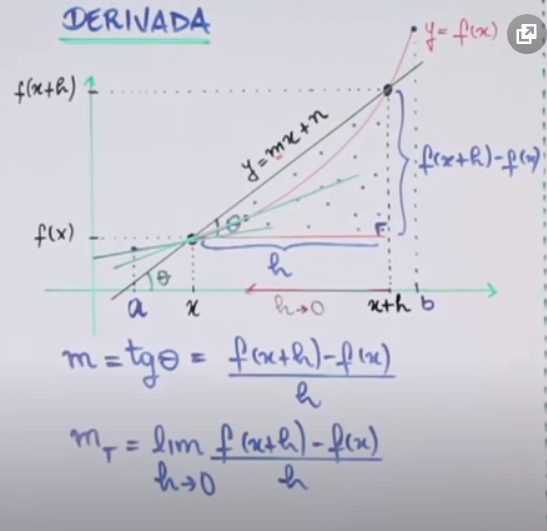 DERIVADA
y = f(x)
f(x+h)
y = mx+n
f(x+h)-f(x)
f(x)
θ
h
θ
a x h→0 x+h b
m = tgθ = f(x+h)-f(x)
h
m_T = lim f(x+h)-f(x)
h→0 h